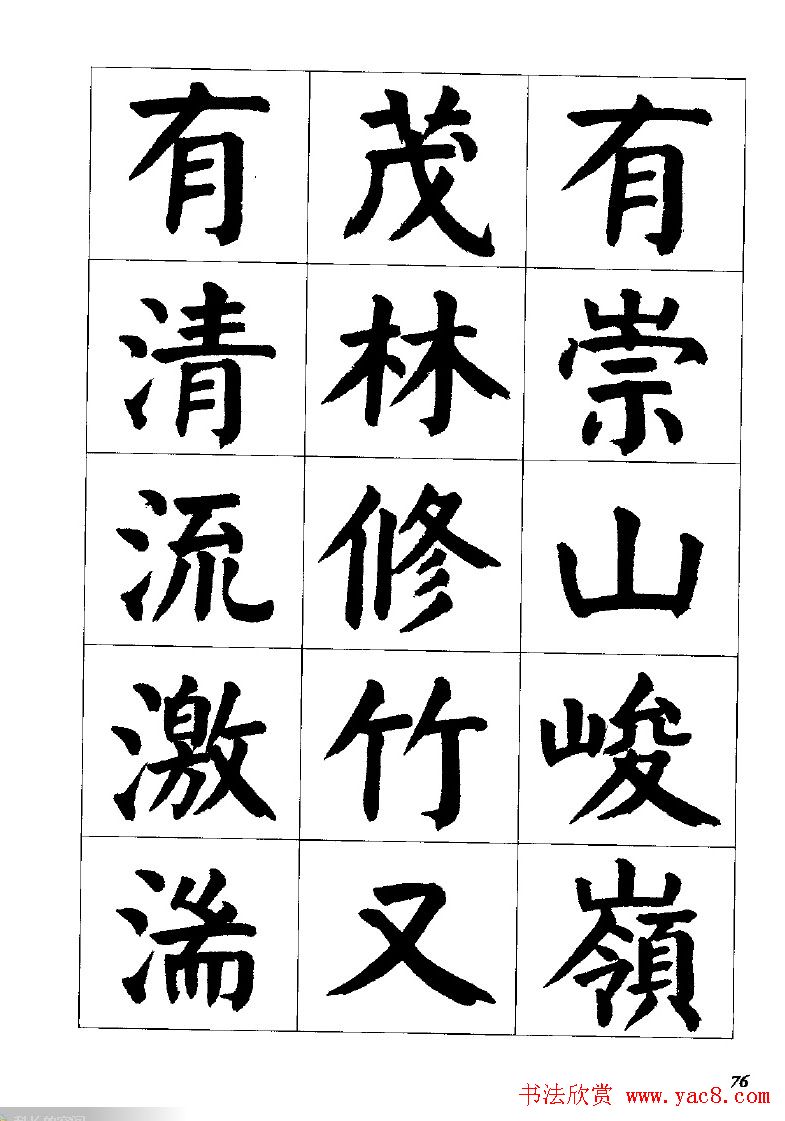 有崇山峻嶺
茂林修竹又
有清流激湍
76
书法欣赏 www.yac8.com